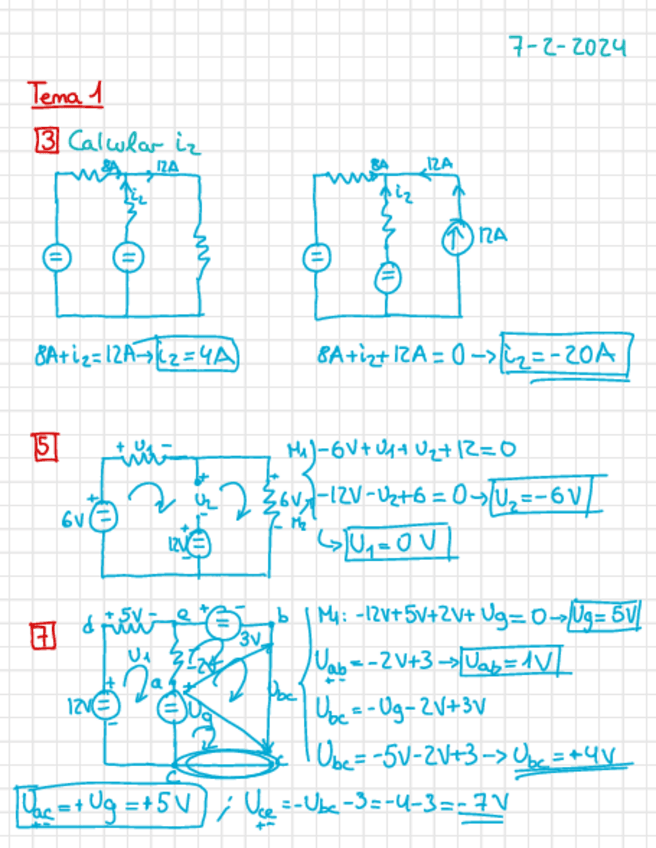 7-2-2024
Tema 1
3 Calcular i2
8A 12A
i2
8A 12A
i2
12A
8A+i2=12A→ i2=4A
8A+i2+12A=0 → i2=-20A
5
+ U1 -
6V
+
U2
-
12V
+
6V
-
M1) -6V+U1+U2+12=0
M2
-12V-U2+6=0→ U2=-6V
↳ U1=0V
7
d +5V- e + - b
3V
U1
2V
a
12V
Ug
Ubc
c
M1: -12V+5V+2V+Ug=0→ Ug=5V
Uab=-2V+3→ Uab=1V
Ubc=-Ug-2V+3V
Ubc=-5V-2V+3--> Ubc=+4V
Uac=+Ug=+5V ; Uce=-Ubc-3=-4-3=-7V